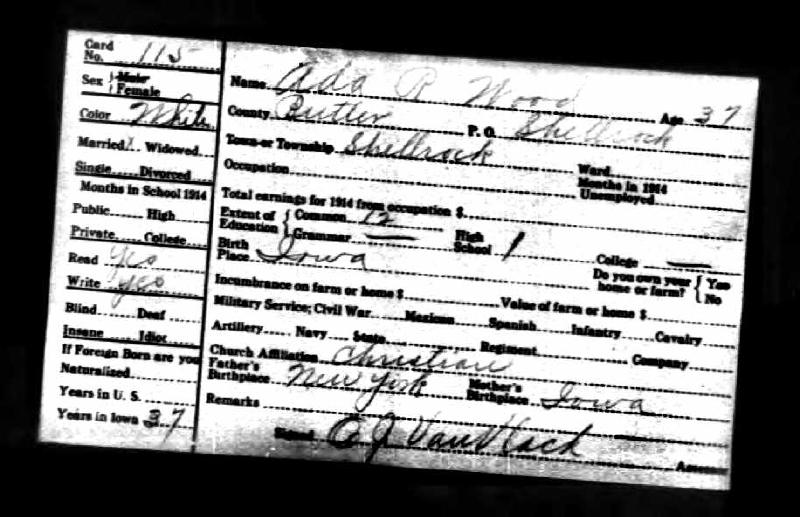 Card No. 115
Sex Male Female
Color White
Married 1 Widowed
Single Divorced
Months in School 1914
Public High
Private College
Read Yes
Write yes
Blind Deaf
Insane Idiot
If Foreign Born are you
Naturalized
Years in U. S.
Years in Iowa 37
Name Ada R Wood Age 37
County Butler P. O. Shellrock
Town or Township Shellrock Ward
Occupation Months in 1914 Unemployed
Total earnings for 1914 from occupation $
Extent of Education { Common 12 High School 1 College —
Grammar —
Birth Place Iowa Do you own your home or farm? { Yes No
Incumbrance on farm or home $ Value of farm or home $
Military Service; Civil War Mexican Spanish Infantry Cavalry
Artillery Navy State Regiment Company
Church Affiliation Christian
Father's Birthplace New York Mother's Birthplace Iowa
Remarks
Signed J VanVlack Assessor